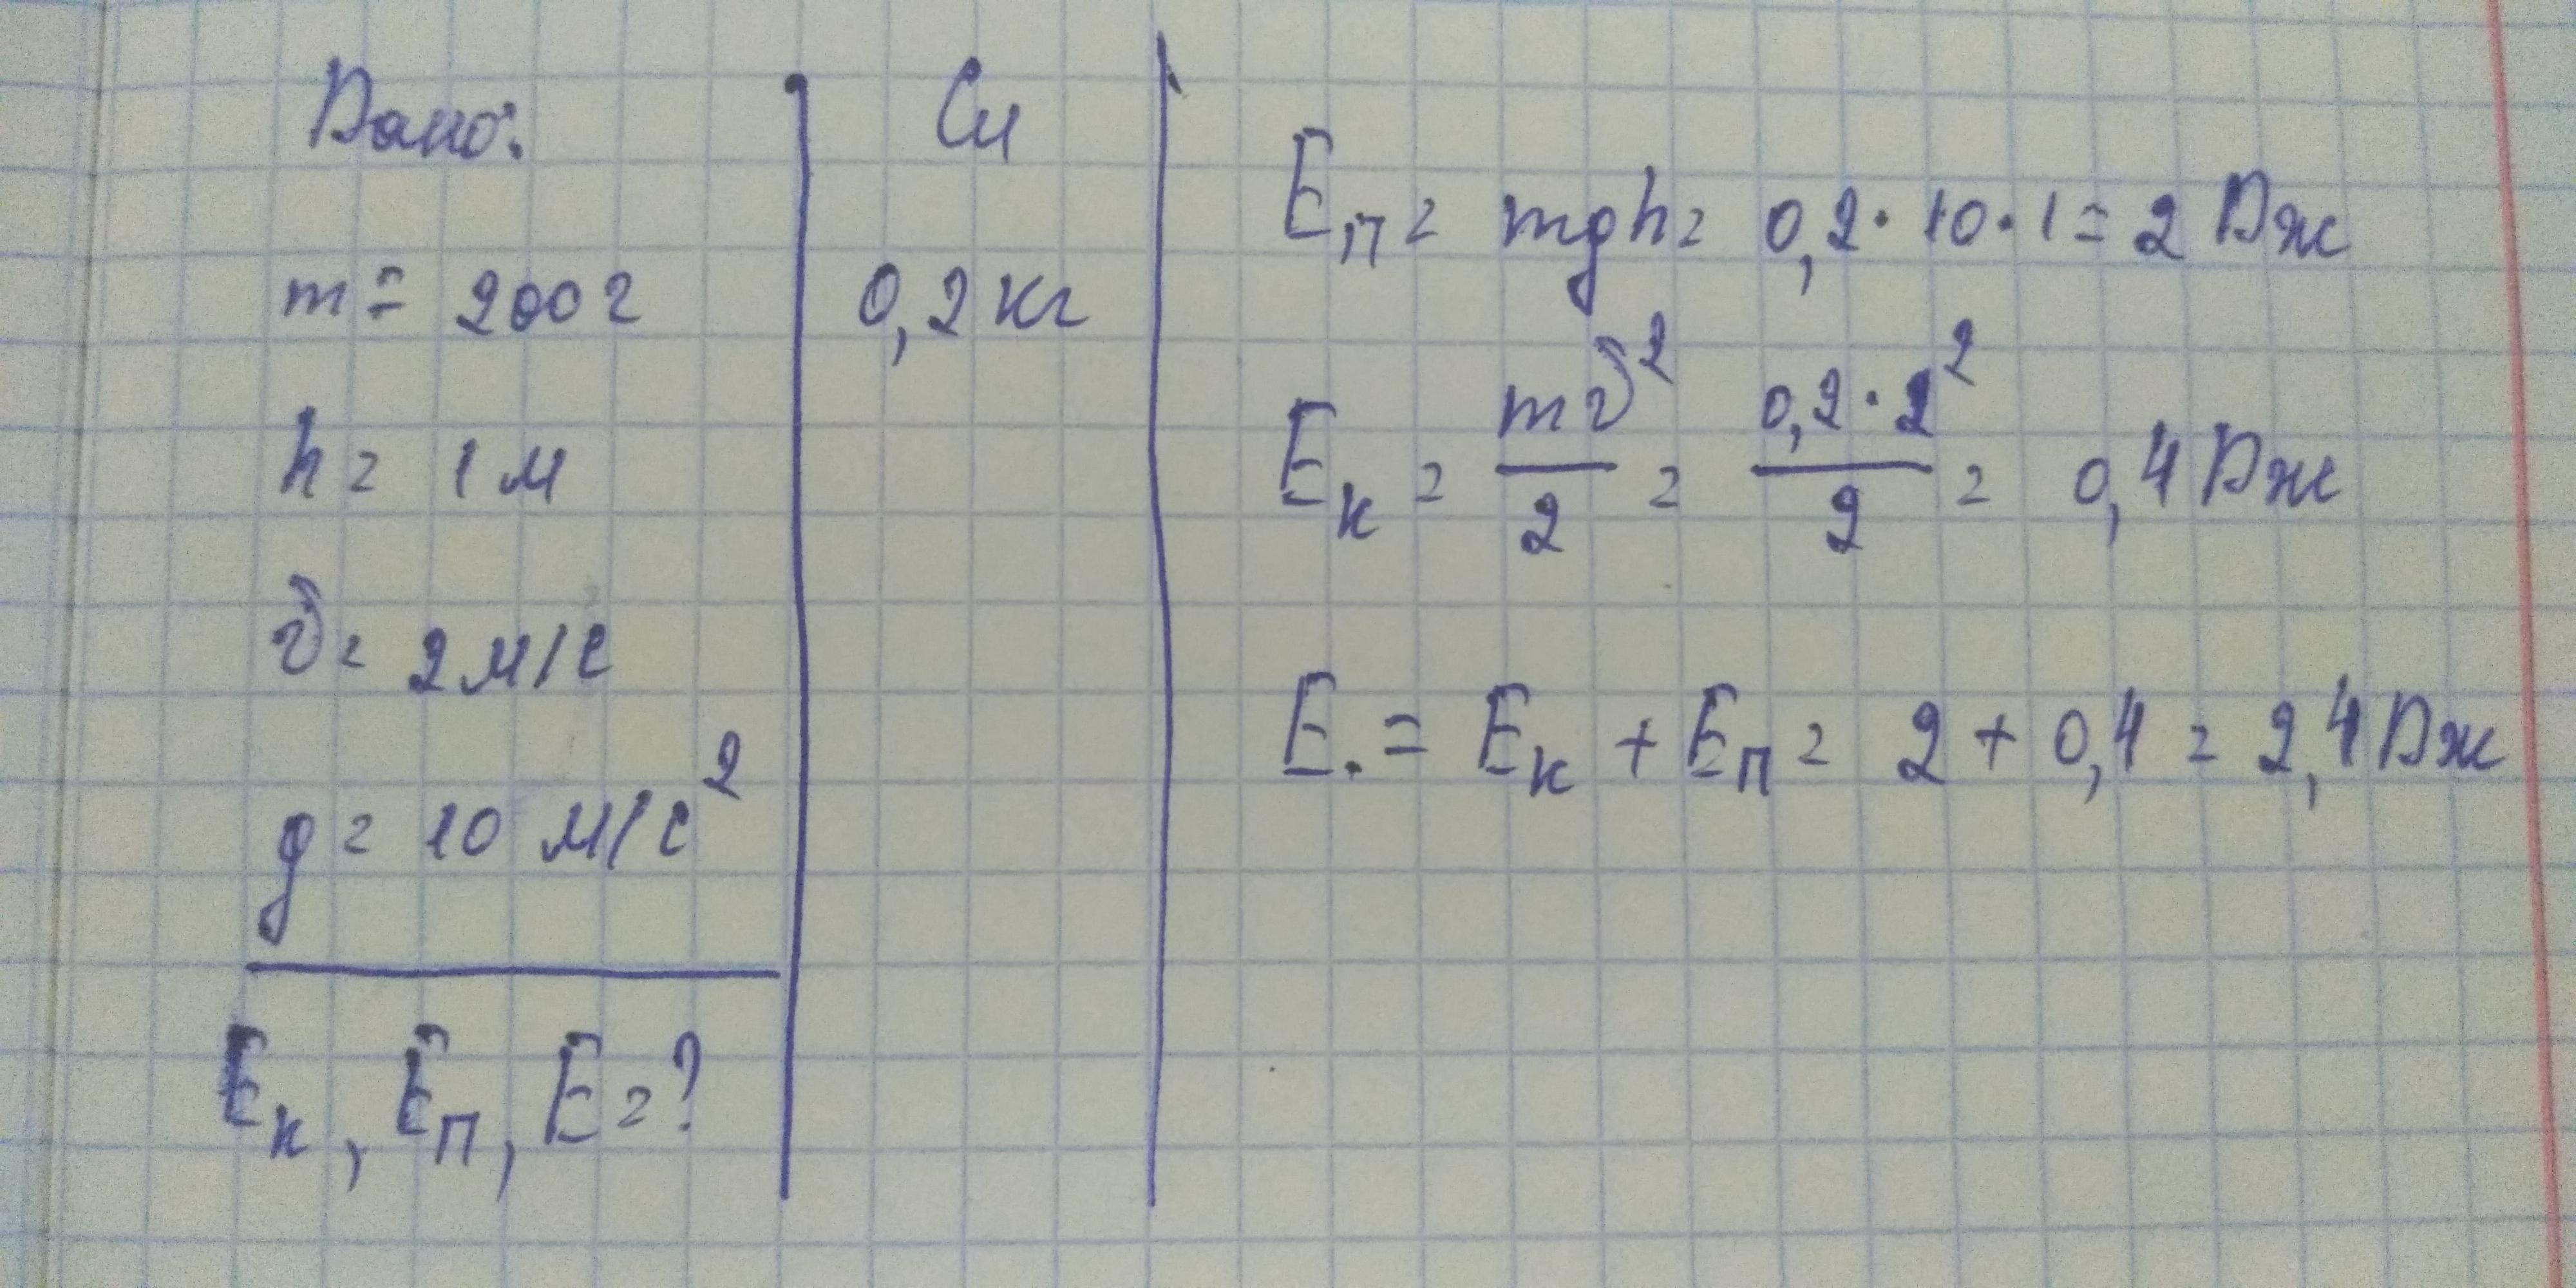 Дано:
m = 200 г
h = 1 м
v = 2 м/с
g = 10 м/с²
Eк, Eп, E = ?
Си
0,2 кг
Eп = mgh = 0,2 · 10 · 1 = 2 Дж
Eк = mv²/2 = 0,2 · 2²/2 = 0,4 Дж
E. = Eк + Eп = 2 + 0,4 = 2,4 Дж